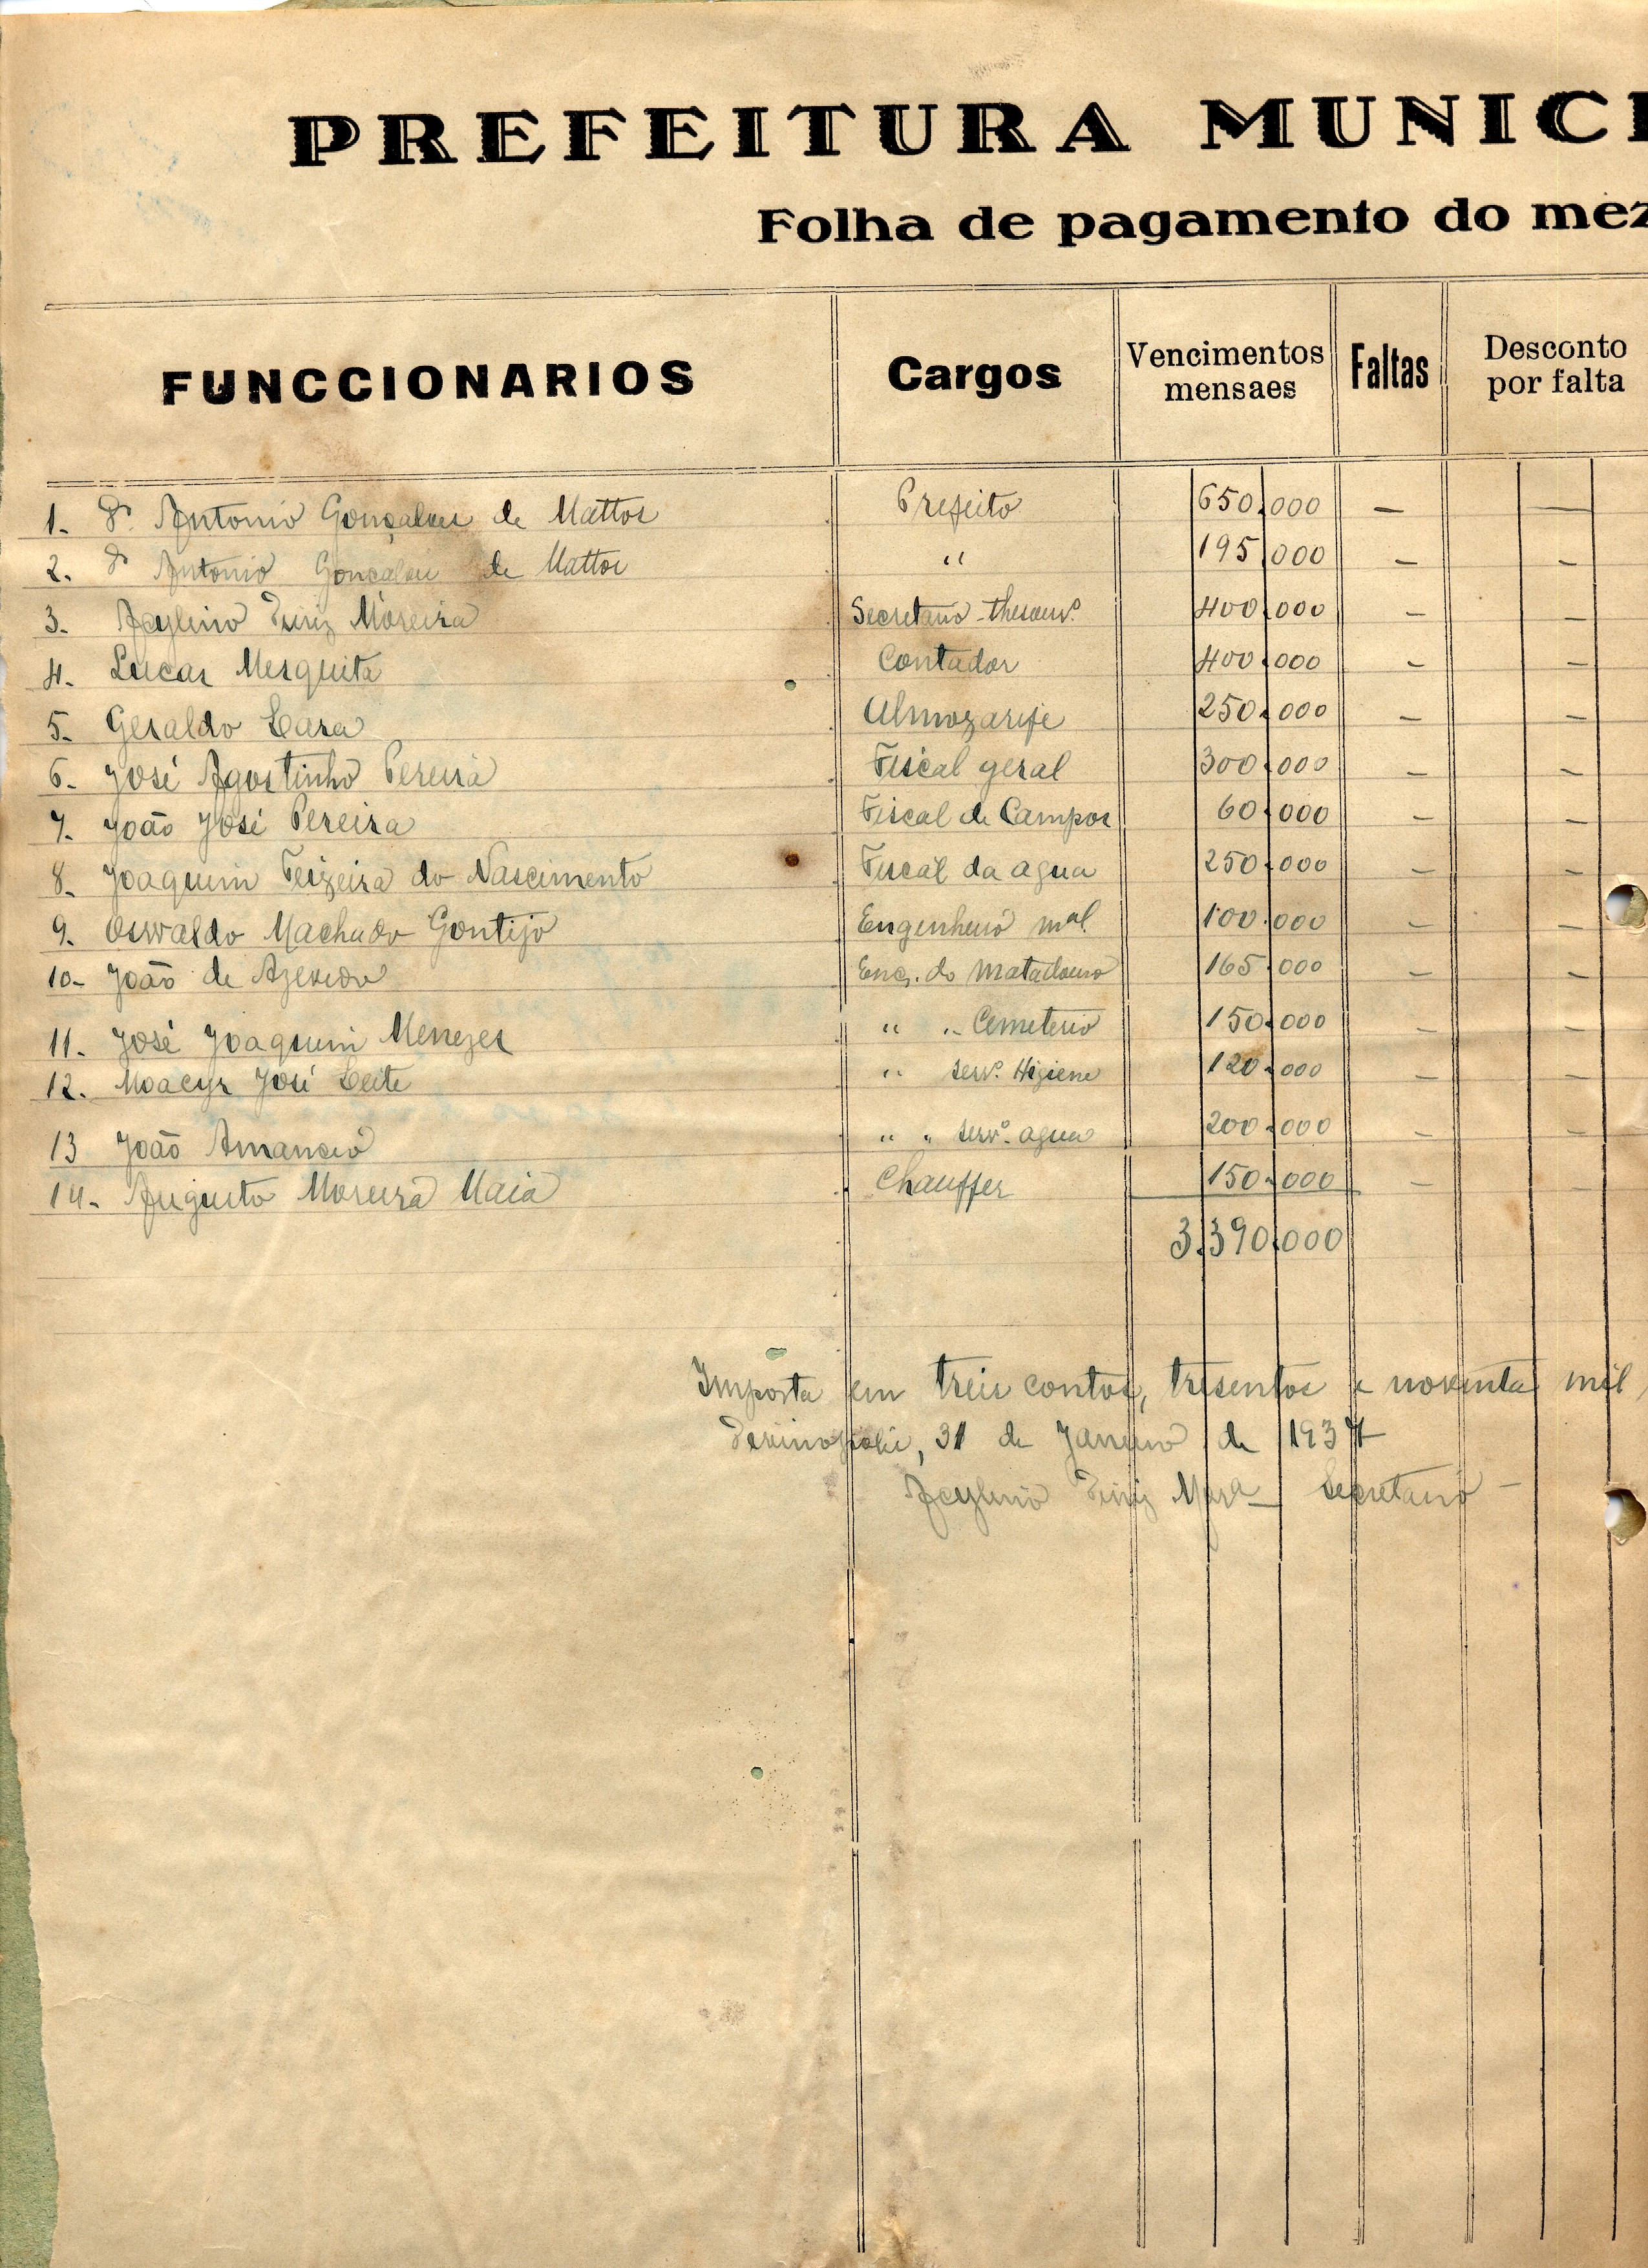 PREFEITURA MUNICI
Folha de pagamento do mez
FUNCCIONARIOS Cargos Vencimentos mensaes Faltas Desconto por falta
1. Dr. Antonio Gonçalves de Mattos Prefeito 650.000 — —
2. Dr Antonio Gonçalves de Mattos " 195.000 — —
3. Acylino Diniz Moreira Secretario-thesour.º 400.000 — —
4. Lucas Mesquita Contador 400.000 — —
5. Geraldo Lara Almozarife 250.000 — —
6. José Agostinho Pereira Fiscal geral 300.000 — —
7. João José Pereira Fiscal de Campos 60.000 — —
8. Joaquim Teixeira do Nascimento Fiscal da agua 250.000 — —
9. Oswaldo Machado Gontijo Engenheiro mal. 100.000 — —
10- João de Azevedo Enc. do Matadouro 165.000 — —
11. José Joaquim Menezes " " Cemeterio 150.000 — —
12. Moacyr José Leite " serv.º Higiene 120.000 — —
13 João Amancio " " servº. agua 200.000 — —
14- Augusto Moreira Maia Chauffer 150.000 — —
3.390.000
Importa em treis contos, tresentos e noventa mil
Divinopolis, 31 de Janeiro de 1937
Acylino Diniz Mora — Secretario —